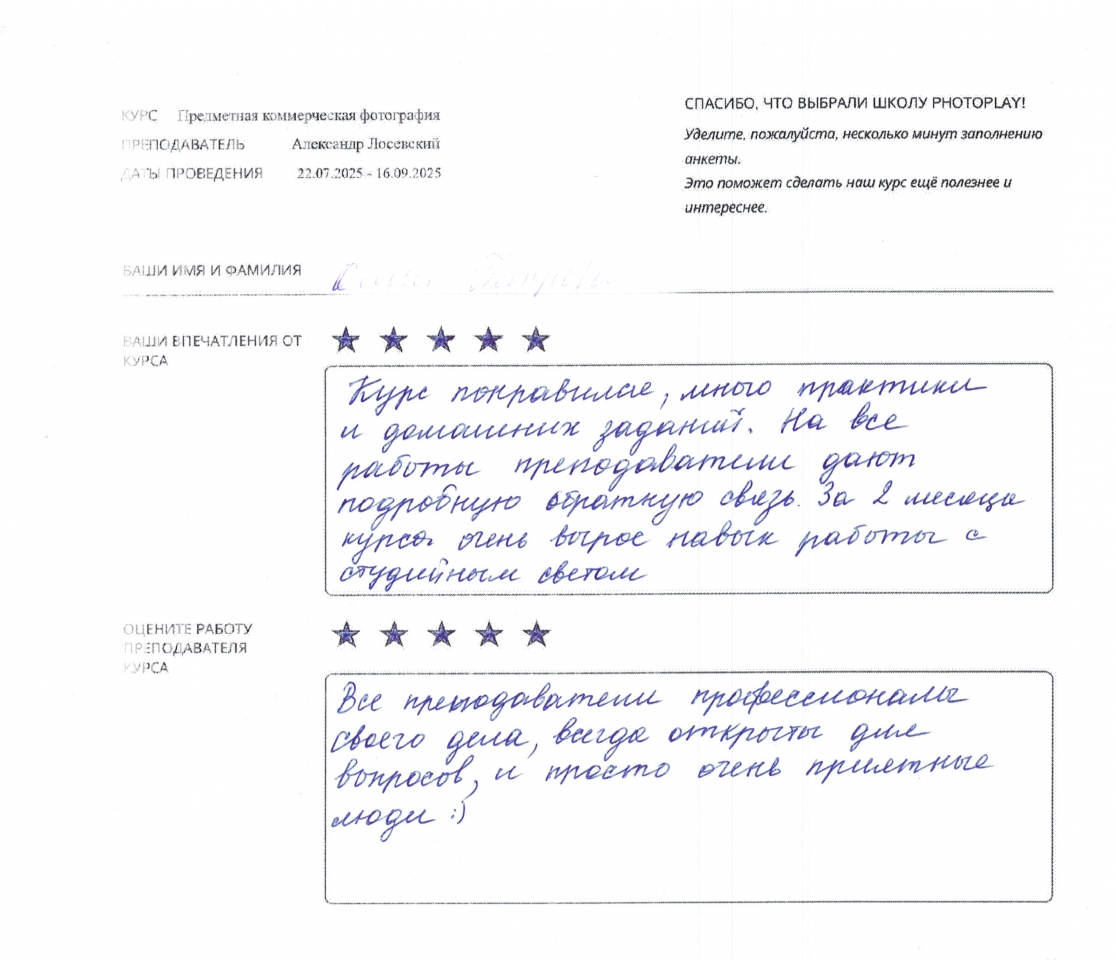 КУРС Предметная коммерческая фотография
ПРЕПОДАВАТЕЛЬ Александр Лосевский
ДАТЫ ПРОВЕДЕНИЯ 22.07.2025 - 16.09.2025
СПАСИБО, ЧТО ВЫБРАЛИ ШКОЛУ PHOTOPLAY!
Уделите, пожалуйста, несколько минут заполнению
анкеты.
Это поможет сделать наш курс ещё полезнее и
интереснее.
ВАШИ ИМЯ И ФАМИЛИЯ
ВАШИ ВПЕЧАТЛЕНИЯ ОТ
КУРСА
Курс понравился, много практики
и домашних заданий. На все
работы преподаватели дают
подробную обратную связь. За 2 месяца
курса очень вырос навык работы с
студийным светом
ОЦЕНИТЕ РАБОТУ
ПРЕПОДАВАТЕЛЯ
КУРСА
Все преподаватели профессионалы
своего дела, всегда открыты для
вопросов, и просто очень приятные
люди :)